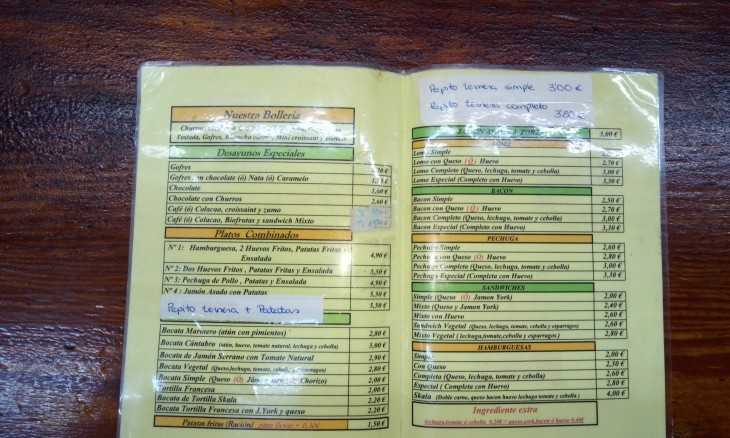 Nuestra Bollería
Desayunos Especiales
Gofres
Gofres con chocolate (ó) Nata (ó) Caramelo
Chocolate
Chocolate con Churros 2,60 €
Café (ó) Colacao, croissaint y zumo
Café (ó) Colacao, Biofrutas y sandwich Mixto
Platos Combinados
Nº 1: Hamburguesa, 2 Huevos Fritos, Patatas Fritas y
Ensalada 4,90 €
Nº 2: Dos Huevos Fritos , Patatas Fritas y Ensalada
Nº 3: Pechuga de Pollo , Patatas Fritas y Ensalada 4,90 €
Nº 4 : Jamón Asado con Patatas 5,50 €
Pepito ternera + Patatas 5,50 €
Bocata Marinero (atún con pimientos) 2,80 €
Bocata Cántabro (atún, huevo, tomate natural, lechuga) 3,00 €
Bocata de Jamón Serrano con Tomate Natural 2,90 €
Bocata Vegetal (Queso,lechuga,tomate, y cebolla) 2,80 €
Bocata Simple (Queso (O) Chorizo) 2,00 €
Tortilla Francesa 2,00 €
Bocata de Tortilla Skala 2,20 €
Bocata Tortilla Francesa con J.York y queso 2,20 €
Patatas fritas (Ración) 1,50 €
Pepito ternera simple 3'00 €
Pepito ternera completo
3,80 €
3,00 €
LOMO
Lomo Simple
Lomo con Queso (O) Huevo 2,70 €
Lomo Completa (Queso, lechuga, tomate y cebolla) 3,00 €
Lomo Especial (Completa con Huevo) 3,30 €
BACON
Bacon Simple 2,50 €
Bacon con Queso (O) Huevo 2,70 €
Bacon Completa (Queso, lechuga, tomate y cebolla) 3,00 €
Bacon Especial (Completa con Huevo) 3,30 €
PECHUGA
Pechuga Simple 2,60 €
Pechuga con Queso (O) Huevo 2,80 €
Pechuga Completa (Queso, lechuga, tomate y cebolla) 3,00 €
Pechuga Especial (Completa con Huevo) 3,30 €
SANDWICHES
Simple (Queso (O) Jamon York) 2,00 €
Mixto (Queso y Jamon York) 2,40 €
Mixto con Huevo 2,60 €
Sandwich Vegetal (Queso, lechuga,tomate, cebolla y esparragos) 2,60 €
Mixto Vegetal (Queso, lechuga, tomate,cebolla y esparragos) 2,80 €
HAMBURGUESAS
Simple 2,00 €
Con Queso 2,30 €
Completa (Queso, lechuga, tomate y cebolla) 2,60 €
Especial ( Completa con Huevo) 2,80 €
Skala (Doble carne, queso bacon huevo lechuga tomate y cebolla) 4,00 €
Ingrediente extra